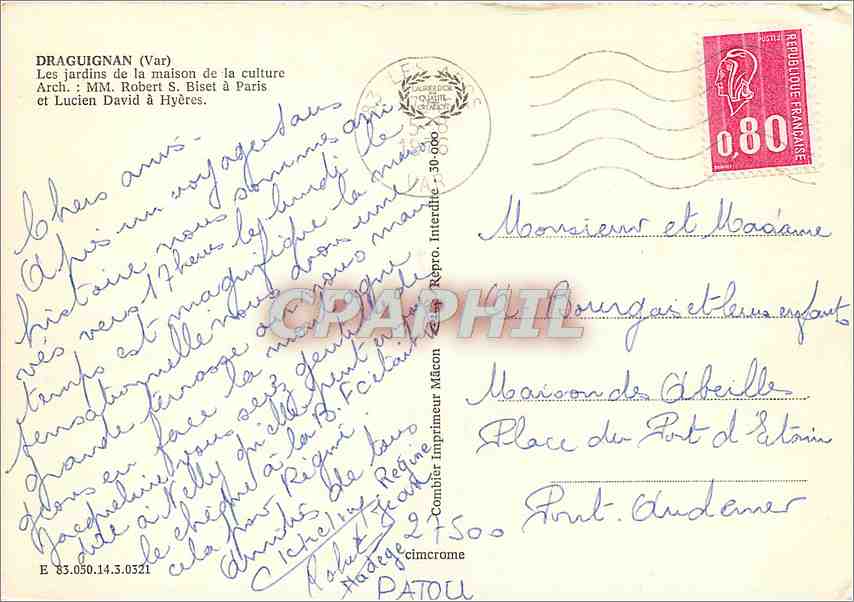 DRAGUIGNAN (Var)
Les jardins de la maison de la culture
Arch. : MM. Robert S. Biset à Paris
et Lucien David à Hyères.
Chers amis.
Après un voyage sans
histoire nous sommes arri
vés vers 17 heures le lundi le
temps est magnifique la maison
sensationnelle nous avons une
grande terrasse où nous man
geons en face la montagne
Jacqueline vous serez gentille de
dite à Nelly qu'elle peut
le chèque à la B.F c'était
cela pour Régine.
Amitiés de tous
Régine
Jean
Robert
Nadège
PATOU
E 83.050.14.3.0321
Combier Imprimeur Mâcon
Repro. Interdite - 30-000
cimcrome
CPAPHIL
LES ARCS
VAR
LAURIER D'OR
QUALITÉ
POSTES
REPUBLIQUE FRANÇAISE
0,80
Monsieur et Madame
Bourgais et leurs enfants
Maison des Abeilles
Place du Port d'Etain
Pont. Audemer
27500